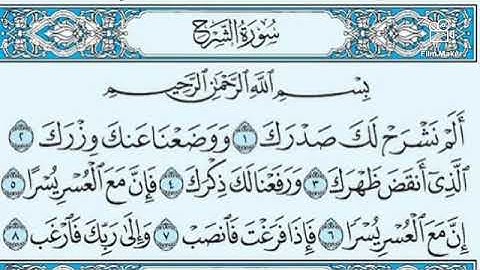 سُورَةُ الشَّرْحِ
Film Maker
بِسْمِ اللَّهِ الرَّحْمَٰنِ الرَّحِيمِ
أَلَمْ نَشْرَحْ لَكَ صَدْرَكَ ١ وَوَضَعْنَا عَنكَ وِزْرَكَ ٢
الَّذِي أَنقَضَ ظَهْرَكَ ٣ وَرَفَعْنَا لَكَ ذِكْرَكَ ٤ فَإِنَّ مَعَ الْعُسْرِ يُسْرًا ٥
إِنَّ مَعَ الْعُسْرِ يُسْرًا ٦ فَإِذَا فَرَغْتَ فَانصَبْ ٧ وَإِلَىٰ رَبِّكَ فَارْغَب ٨